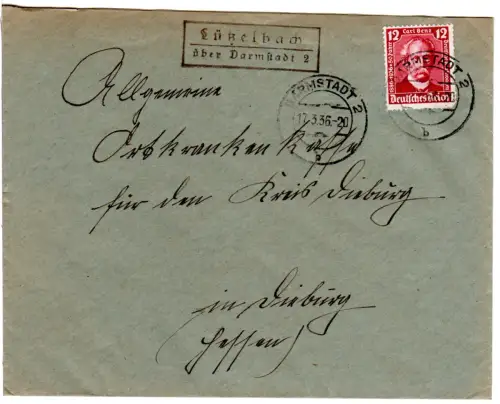 Lützelbach
über Darmstadt 2
12 Carl Benz 12
Deutsches Reich
DARMSTADT 2
17.3.36.-20
b
DARMSTADT 2
b
Allgemeine
Ortskrankenkasse
für den Kreis Dieburg
in Dieburg
(Hessen)